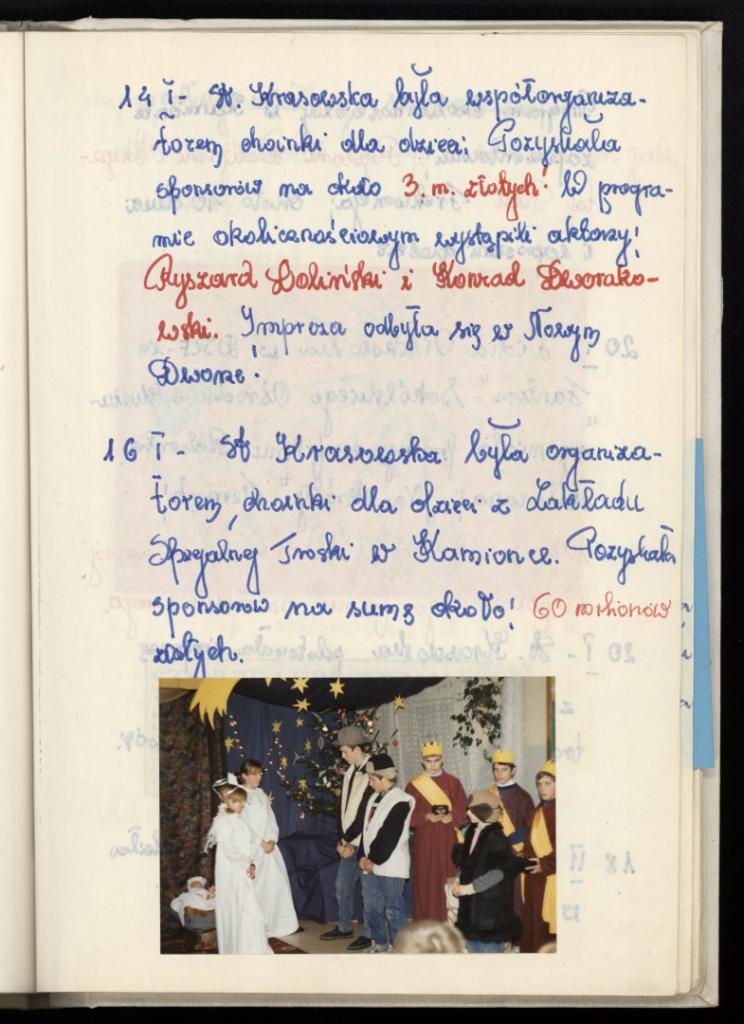 14 I - St. Krasowska była współorganiza-
torem choinki dla dzieci. Pozyskała
sponsorów na około 3. m. złotych. W progra-
mie okolicznościowym wystąpili aktorzy:
Ryszard Doliński i Konrad Dworako-
wski. Impreza odbyła się w Nowym
Dworze.
16 I - St. Krasowska była organiza-
torem, choinki dla dzieci z Zakładu
Specjalnej Troski w Kamionce. Pozyskała
sponsorów na sumę około: 60 milionów
złotych.